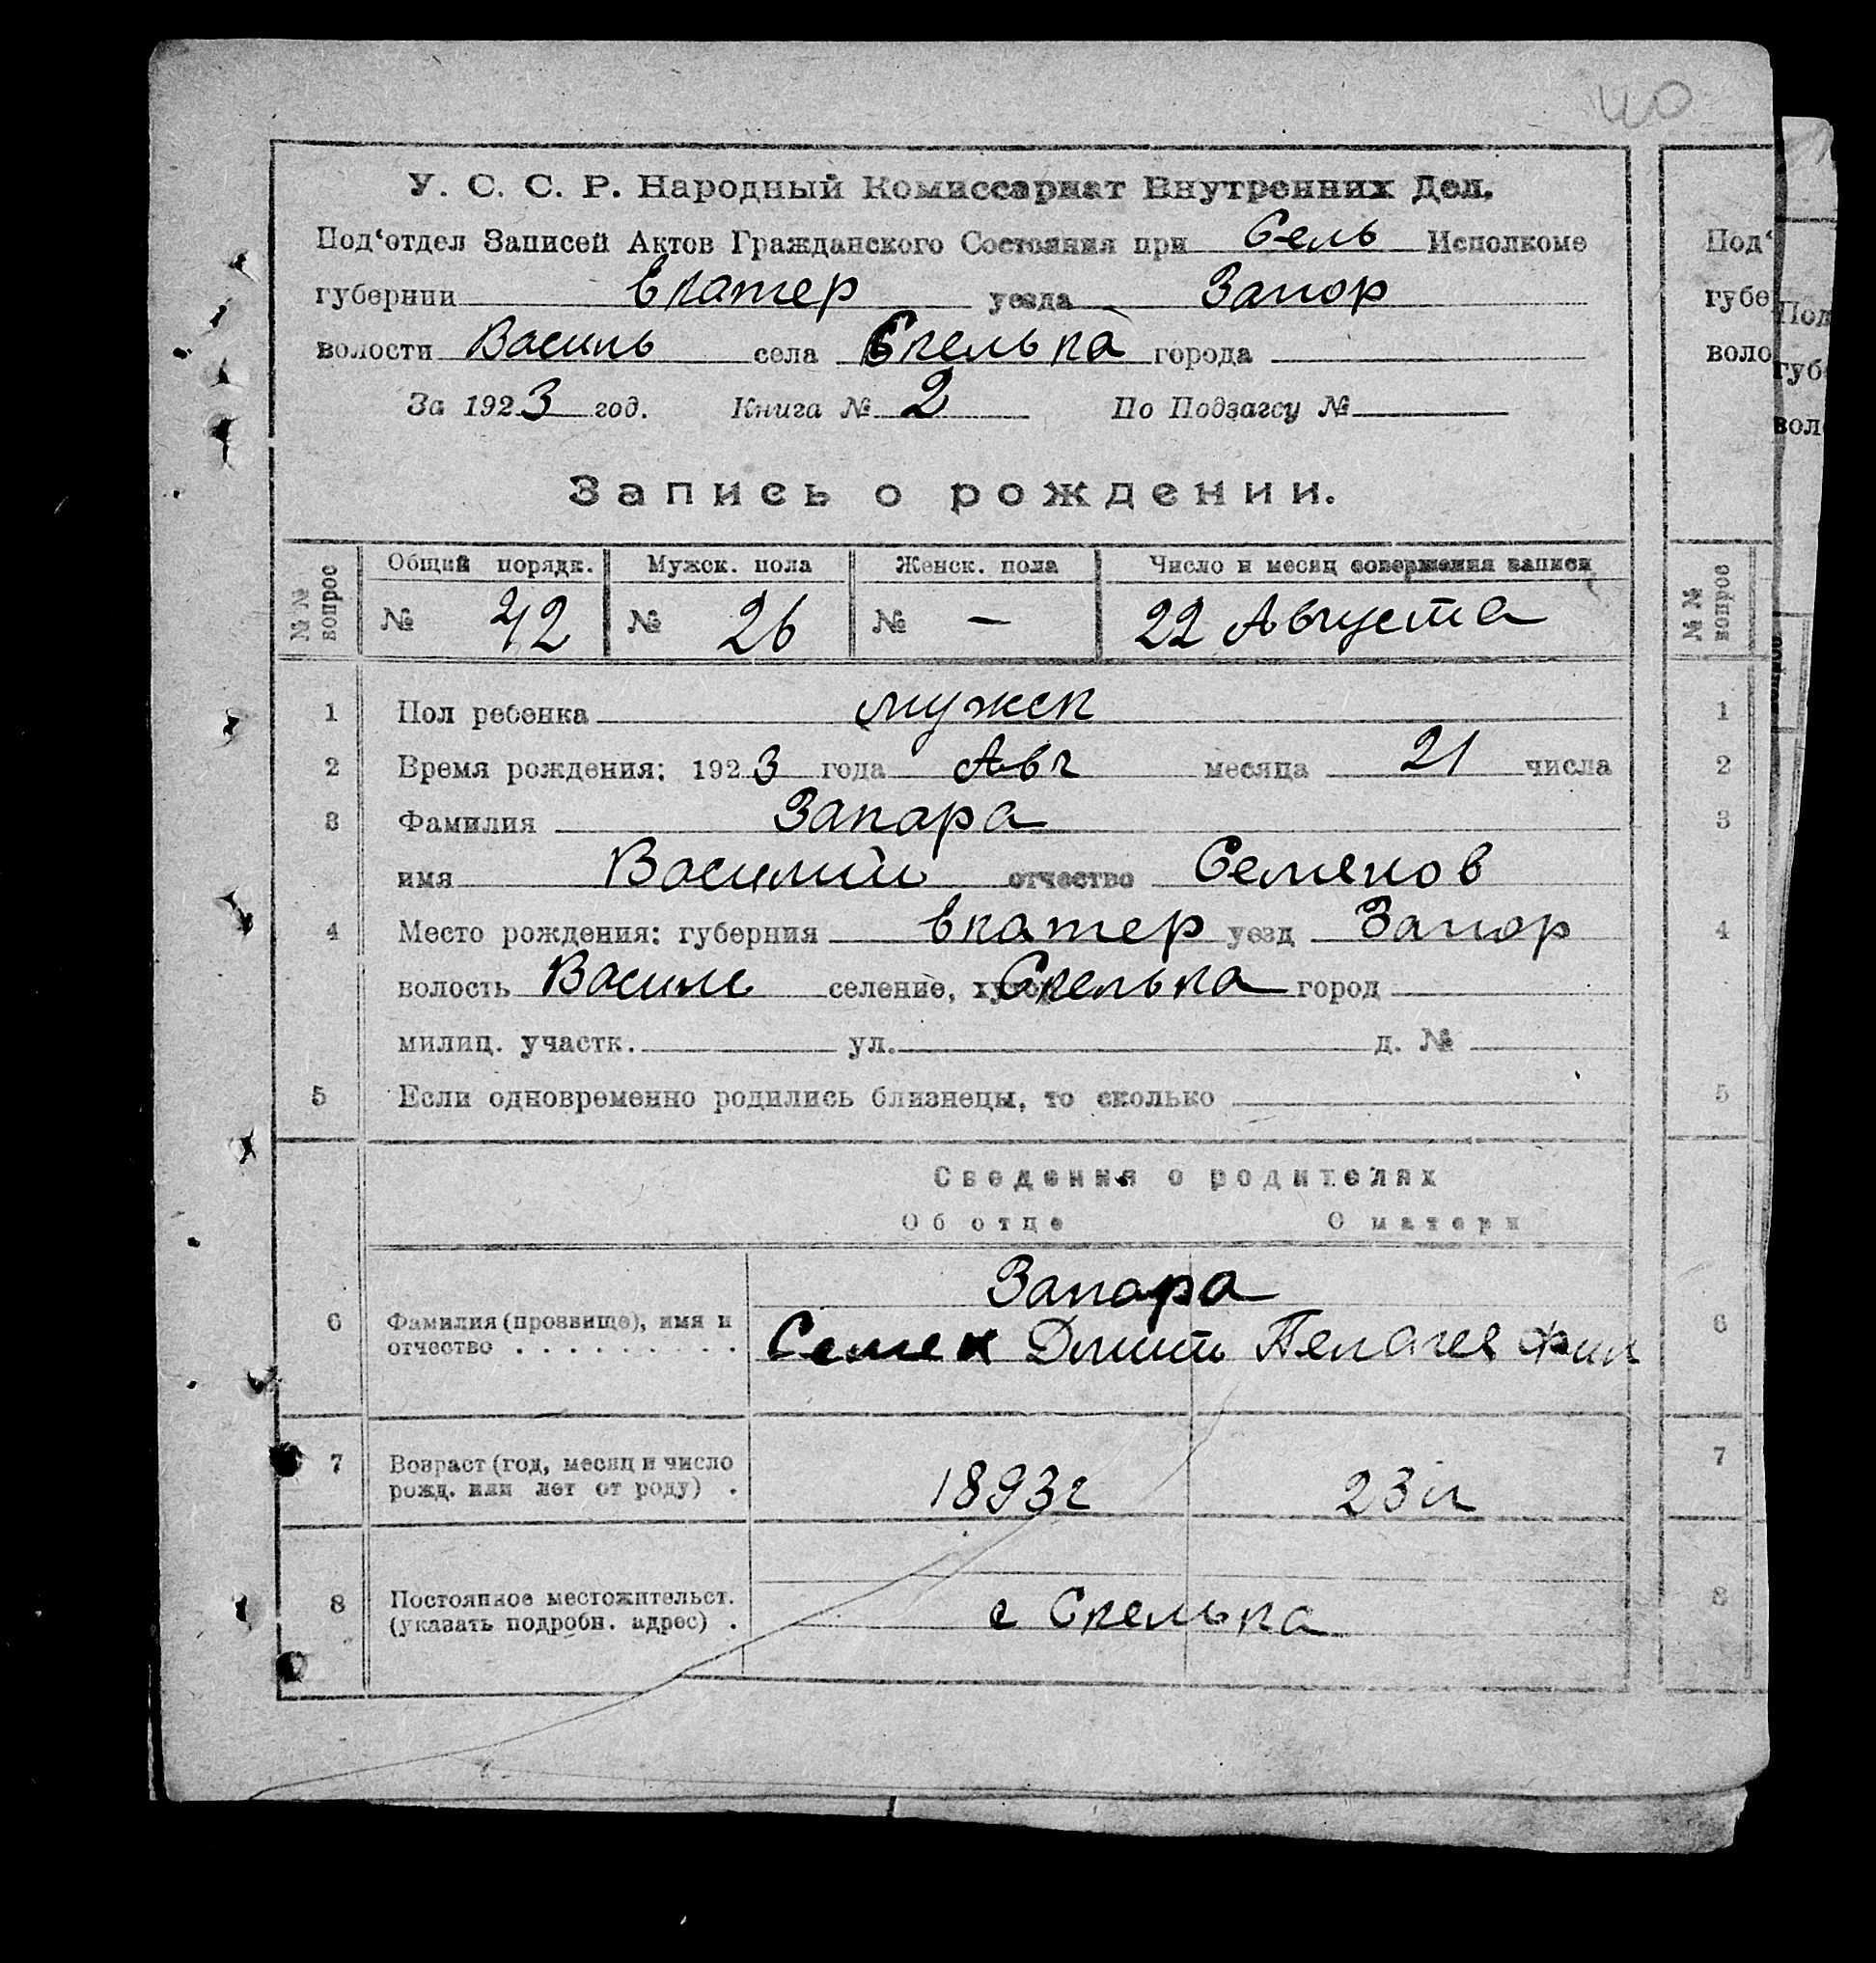 40
У. С. С. Р. Народный Комиссариат Внутренних Дел.
Под‘отдел Записей Актов Гражданского Состояния при Сель Исполкоме
губернии Екатер уезда Запор
волости Василь села Скелька города
За 1923 год. Книга № 2 По Подзагсу №
Запись о рождении.
№ № вопрос Общий порядк. Мужск. пола Женск. пола Число и месяц совершения записи
№ 42 № 26 № — 22 Августа
1 Пол ребенка мужск
2 Время рождения: 1923 года Авг месяца 21 числа
3 Фамилия Запара
имя Василий отчество Семенов
4 Место рождения: губерния Екатер уезд Запор
волость Васил селение, Скелька город
милиц. участк. ул. д. №
5 Если одновременно родились близнецы, то сколько
Сведения о родителях
Об отце О матери
Запара
6 Фамилия (прозвище), имя и
отчество . . . . . . . . . Семен Дмит Пелагея Фил
7 Возраст (год, месяц и число
рожд. или лет от роду) . 1893г 23 л
8 Постоянное местожительст.
(указать подробн. адрес) . с Скелька
Под‘
губе
воло
№ № вопрос
1
2
3
4
5
6
7
8
Под
губе
воло